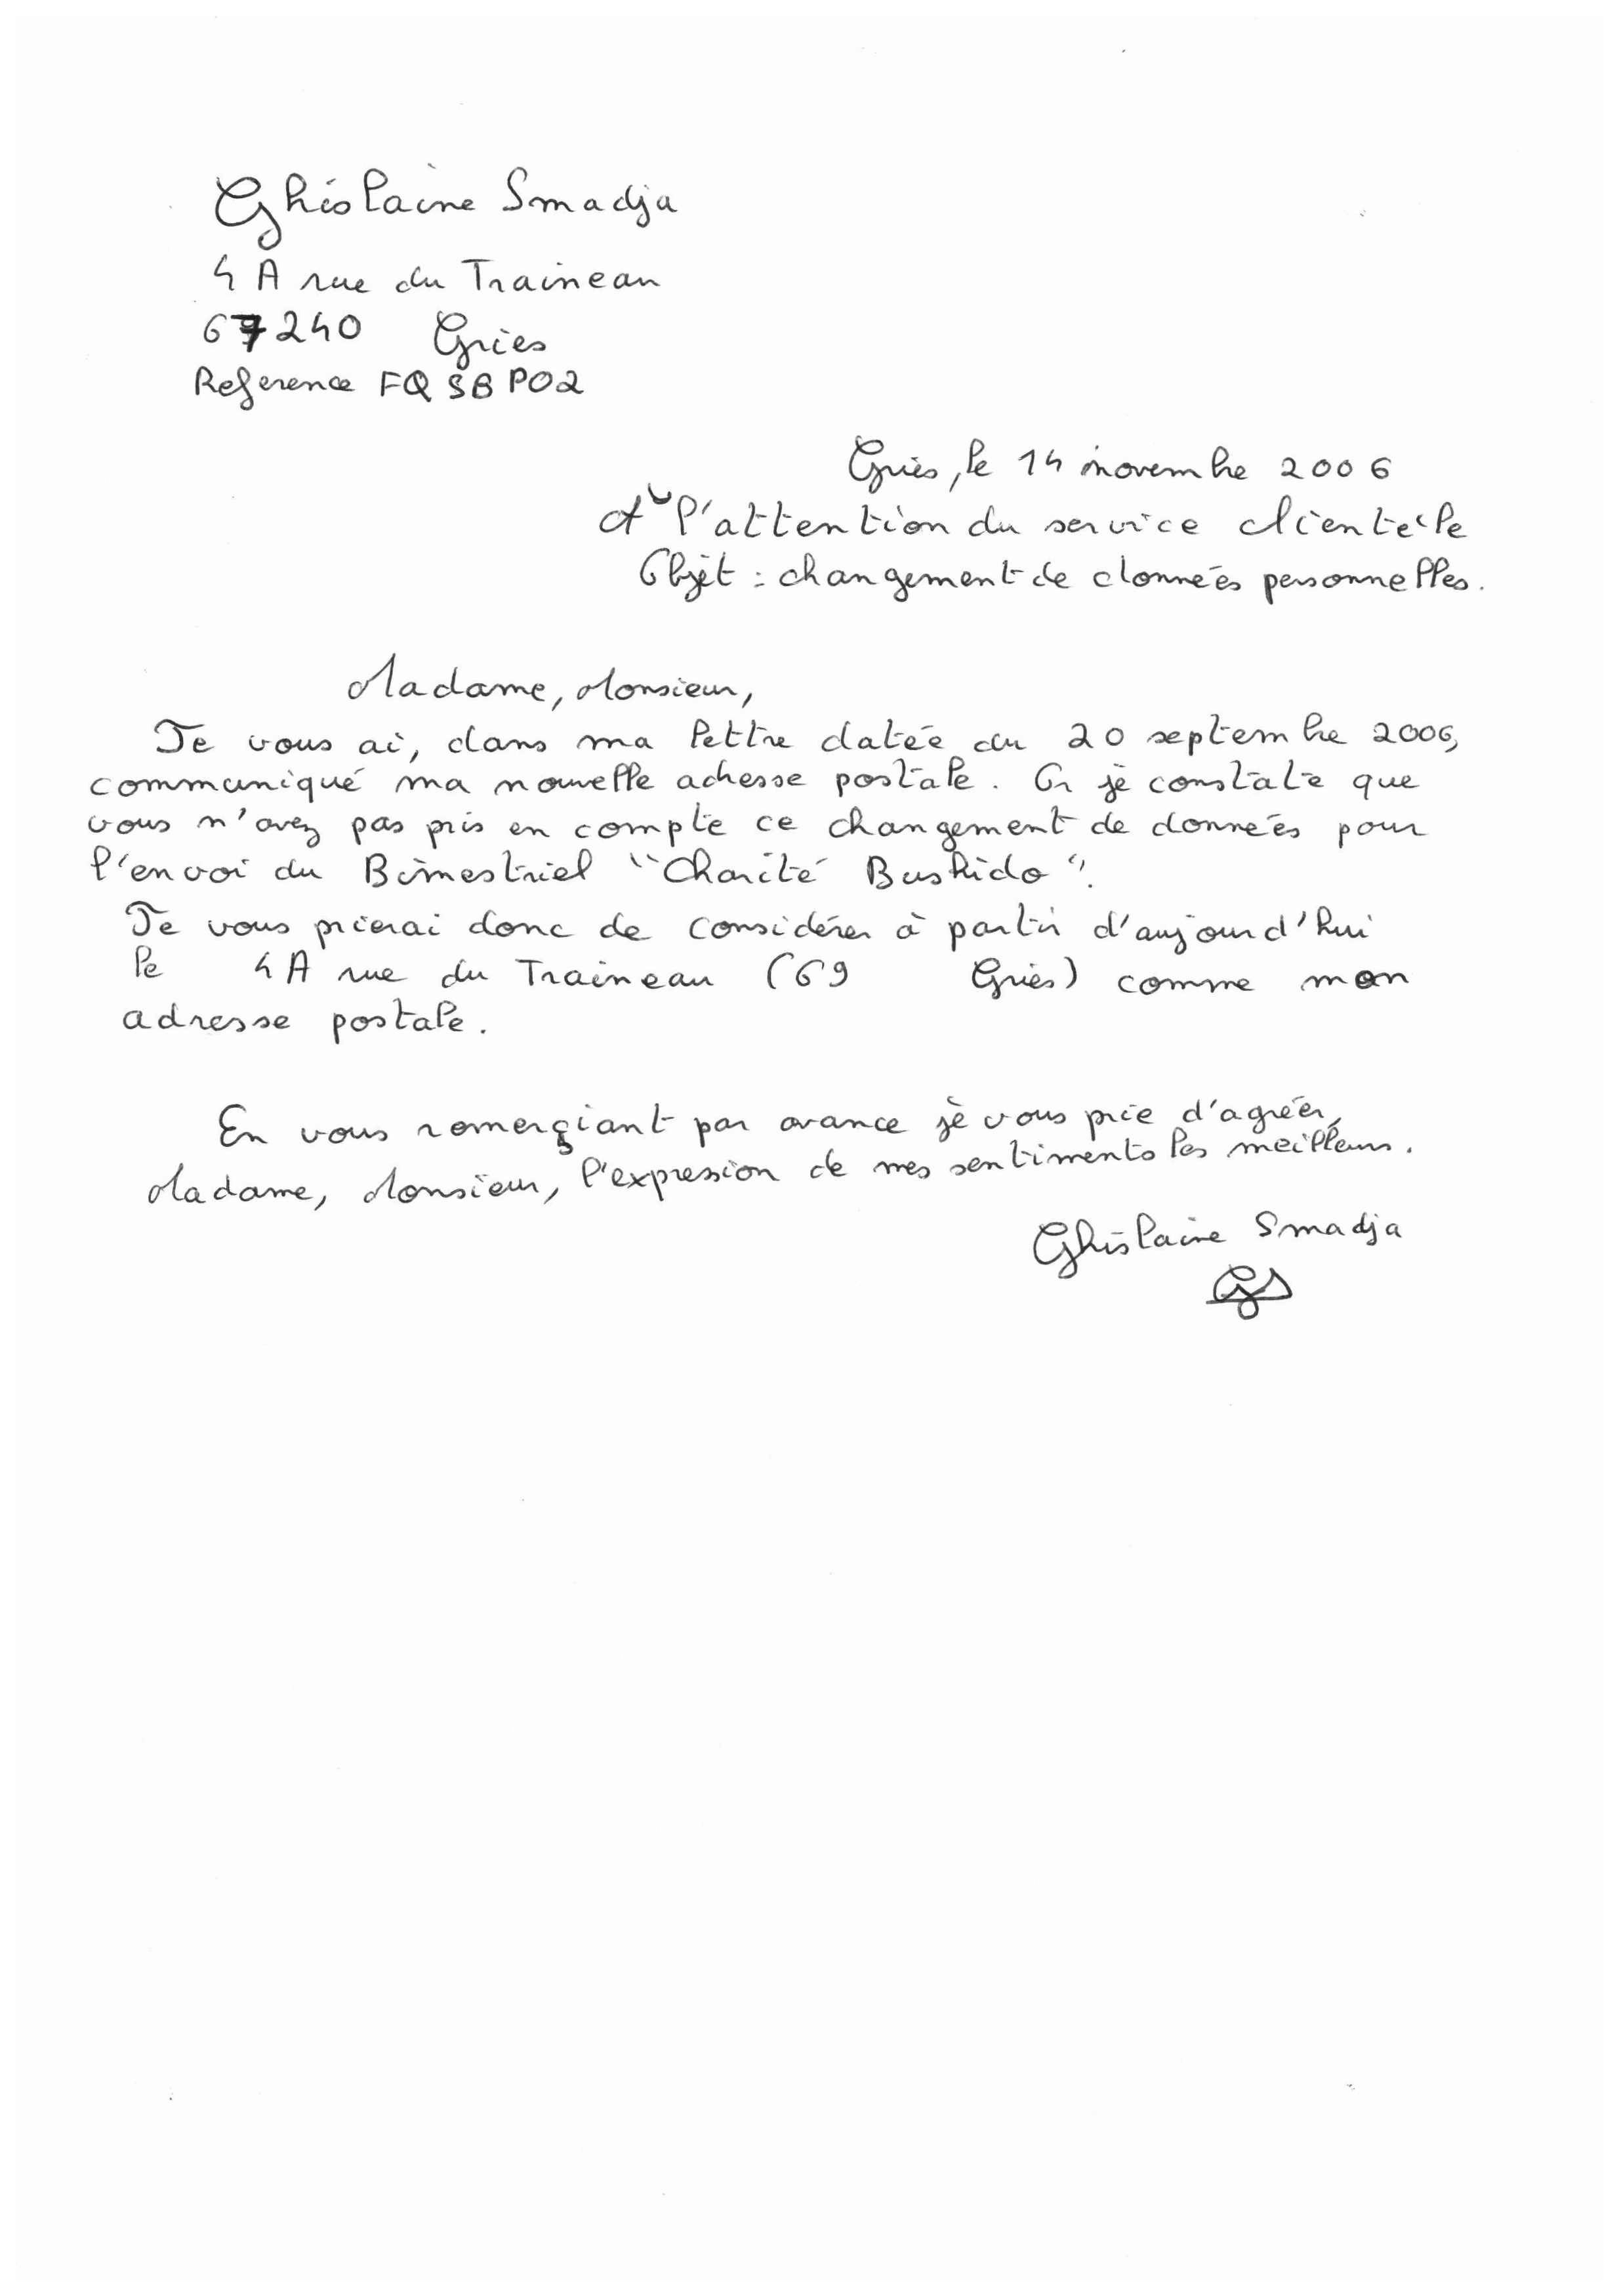 Ghislaine Smadja
4 A rue du Traineau
67240 Gries
Reference FQSBPO2
Gries, le 14 novembre 2006
A l'attention du service clientèle
Objet : changement de données personnelles.
Madame, Monsieur,
Je vous ai, dans ma lettre datée du 20 septembre 2006,
communiqué ma nouvelle adresse postale. Or je constate que
vous n'avez pas pris en compte ce changement de données pour
l'envoi du Bimestriel "Charité Bushido".
Je vous prierai donc de considérer à partir d'aujourd'hui
le 4 A rue du Traineau (69 Gries) comme mon
adresse postale.
En vous remerçiant par avance je vous prie d'agréer,
Madame, Monsieur, l'expression de mes sentiments les meilleurs.
Ghislaine Smadja
GS